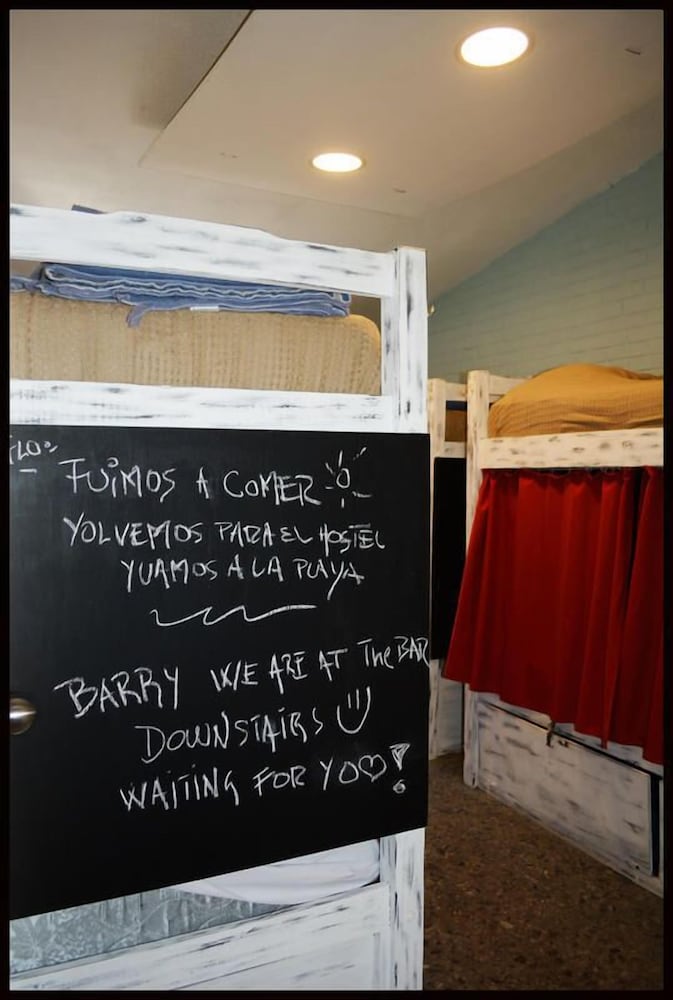 FLO:
FUIMOS A COMER
VOLVEMOS PARA EL HOSTEL
Y VAMOS A LA PLAYA
BARRY WE ARE AT The BAR
DOWNSTAIRS
WAITING FOR YO♡!